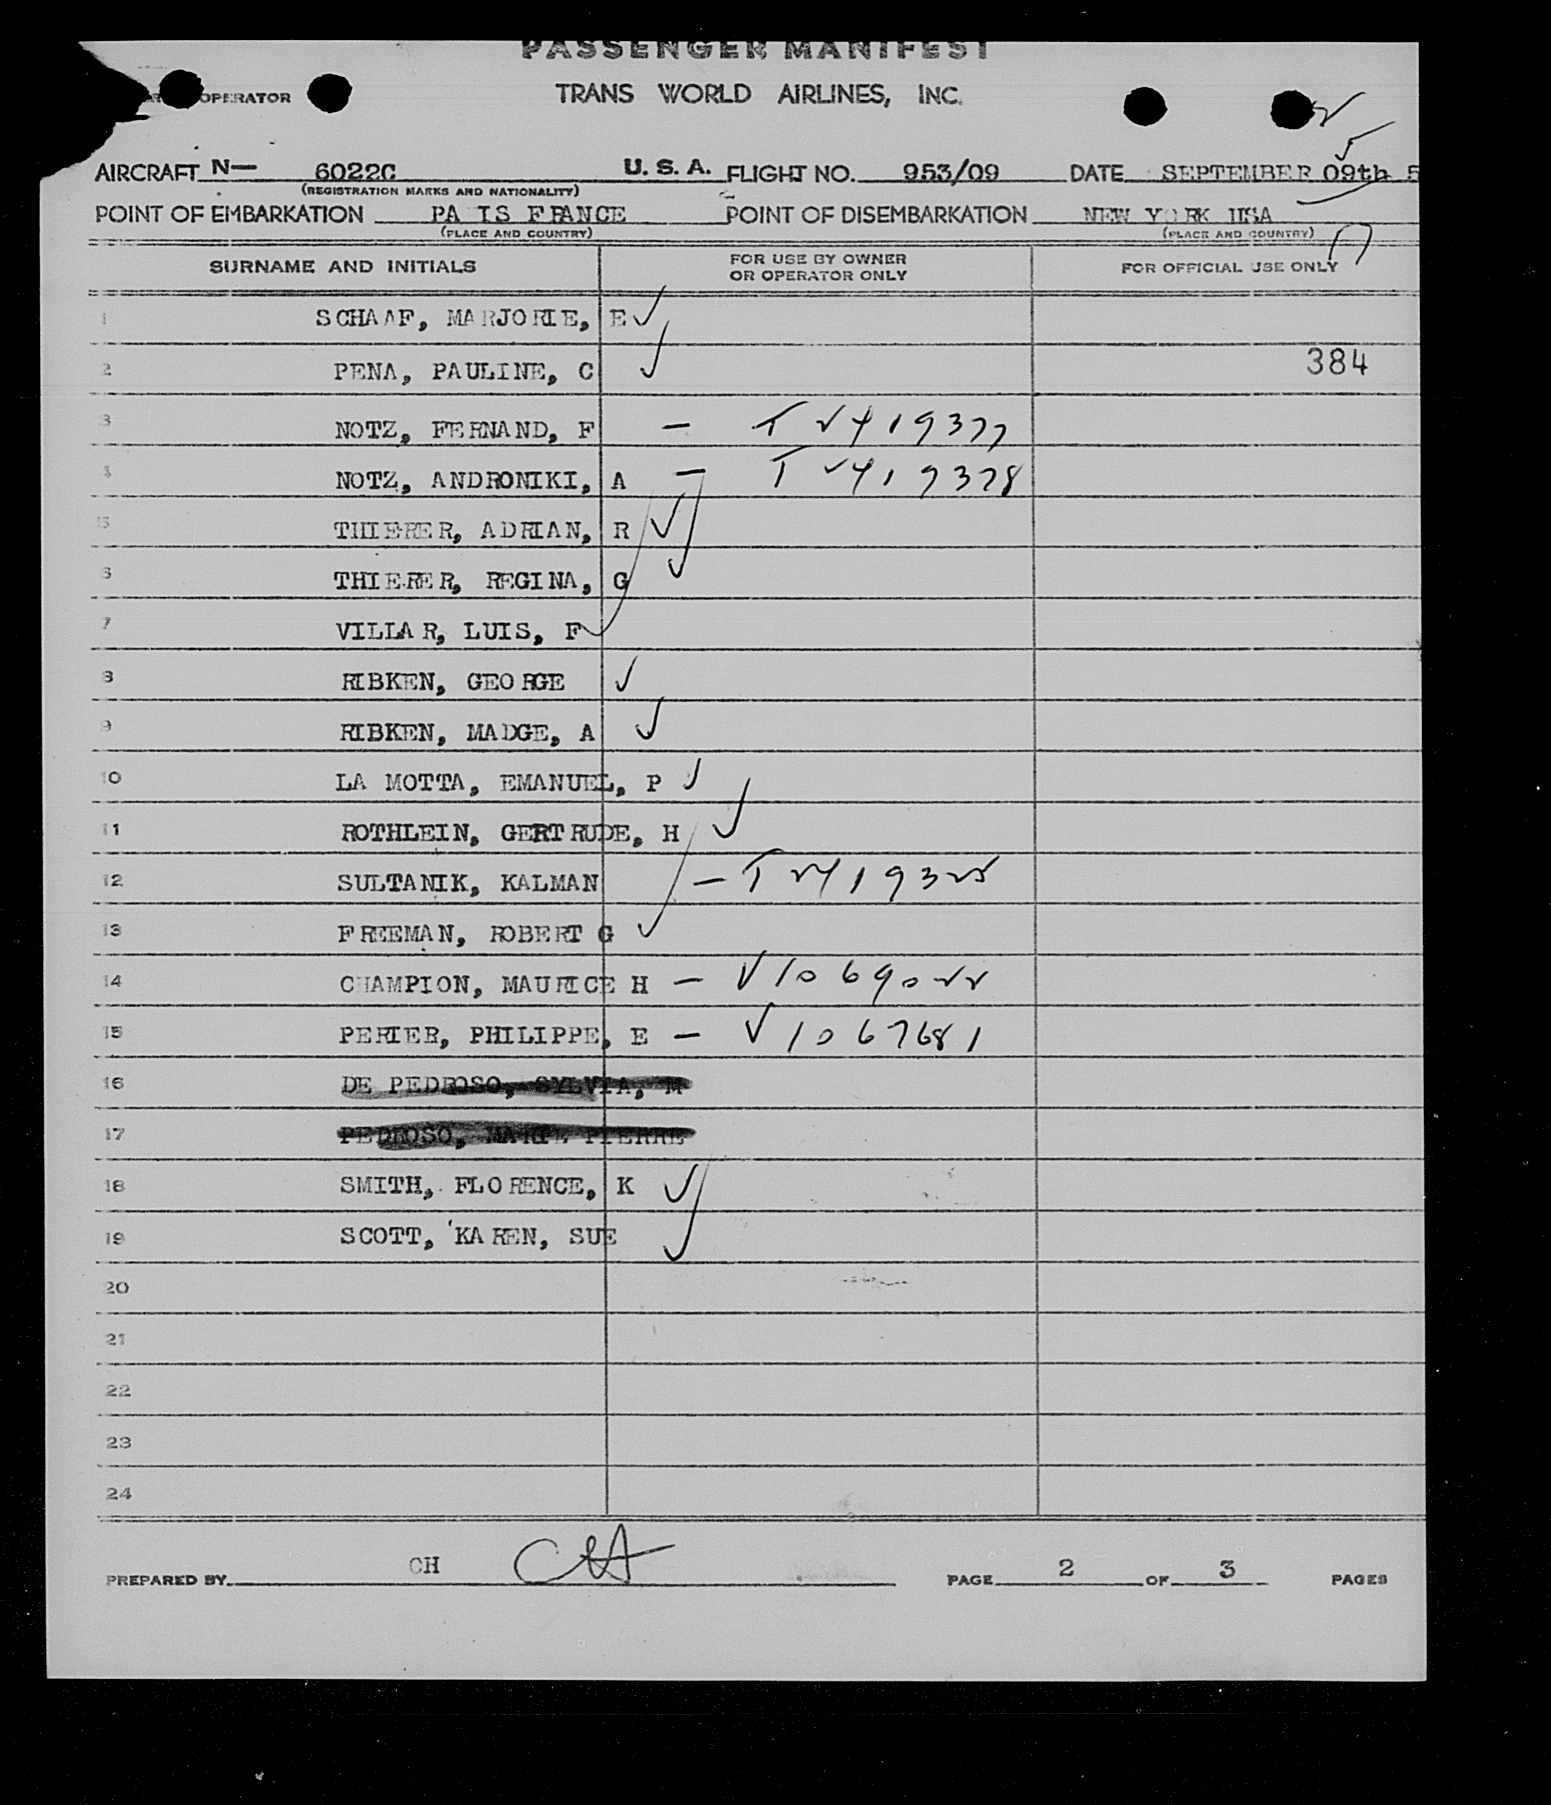 PASSENGER MANIFEST
OPERATOR TRANS WORLD AIRLINES, INC.
AIRCRAFT N— 6022C U. S. A. FLIGHT NO. 953/09 DATE SEPTEMBER 09th 5
(REGISTRATION MARKS AND NATIONALITY)
POINT OF EMBARKATION PA IS FRANCE POINT OF DISEMBARKATION NEW YORK USA
(PLACE AND COUNTRY) (PLACE AND COUNTRY)
SURNAME AND INITIALS FOR USE BY OWNER OR OPERATOR ONLY FOR OFFICIAL USE ONLY
1 SCHAAF, MARJORIE, E ✓
2 PENA, PAULINE, C ✓ 384
3 NOTZ, FERNAND, F — T V419377
4 NOTZ, ANDRONIKI, A — T V419378
5 THIERER, ADRIAN, R ✓
6 THIERER, REGINA, G ✓
7 VILLAR, LUIS, F ✓
8 RIBKEN, GEORGE ✓
9 RIBKEN, MADGE, A ✓
10 LA MOTTA, EMANUEL, P ✓
11 ROTHLEIN, GERTRUDE, H ✓
12 SULTANIK, KALMAN — T V419325
13 FREEMAN, ROBERT G ✓
14 CHAMPION, MAURICE H — V1069022
15 PERIER, PHILIPPE, E — V1067681
16 DE PEDROSO, SYLVIA, M
17 PEDROSO, MARIE PIERRE
18 SMITH, FLORENCE, K ✓
19 SCOTT, KAREN, SUE ✓
20
21
22
23
24
PREPARED BY CH CH PAGE 2 OF 3 PAGES